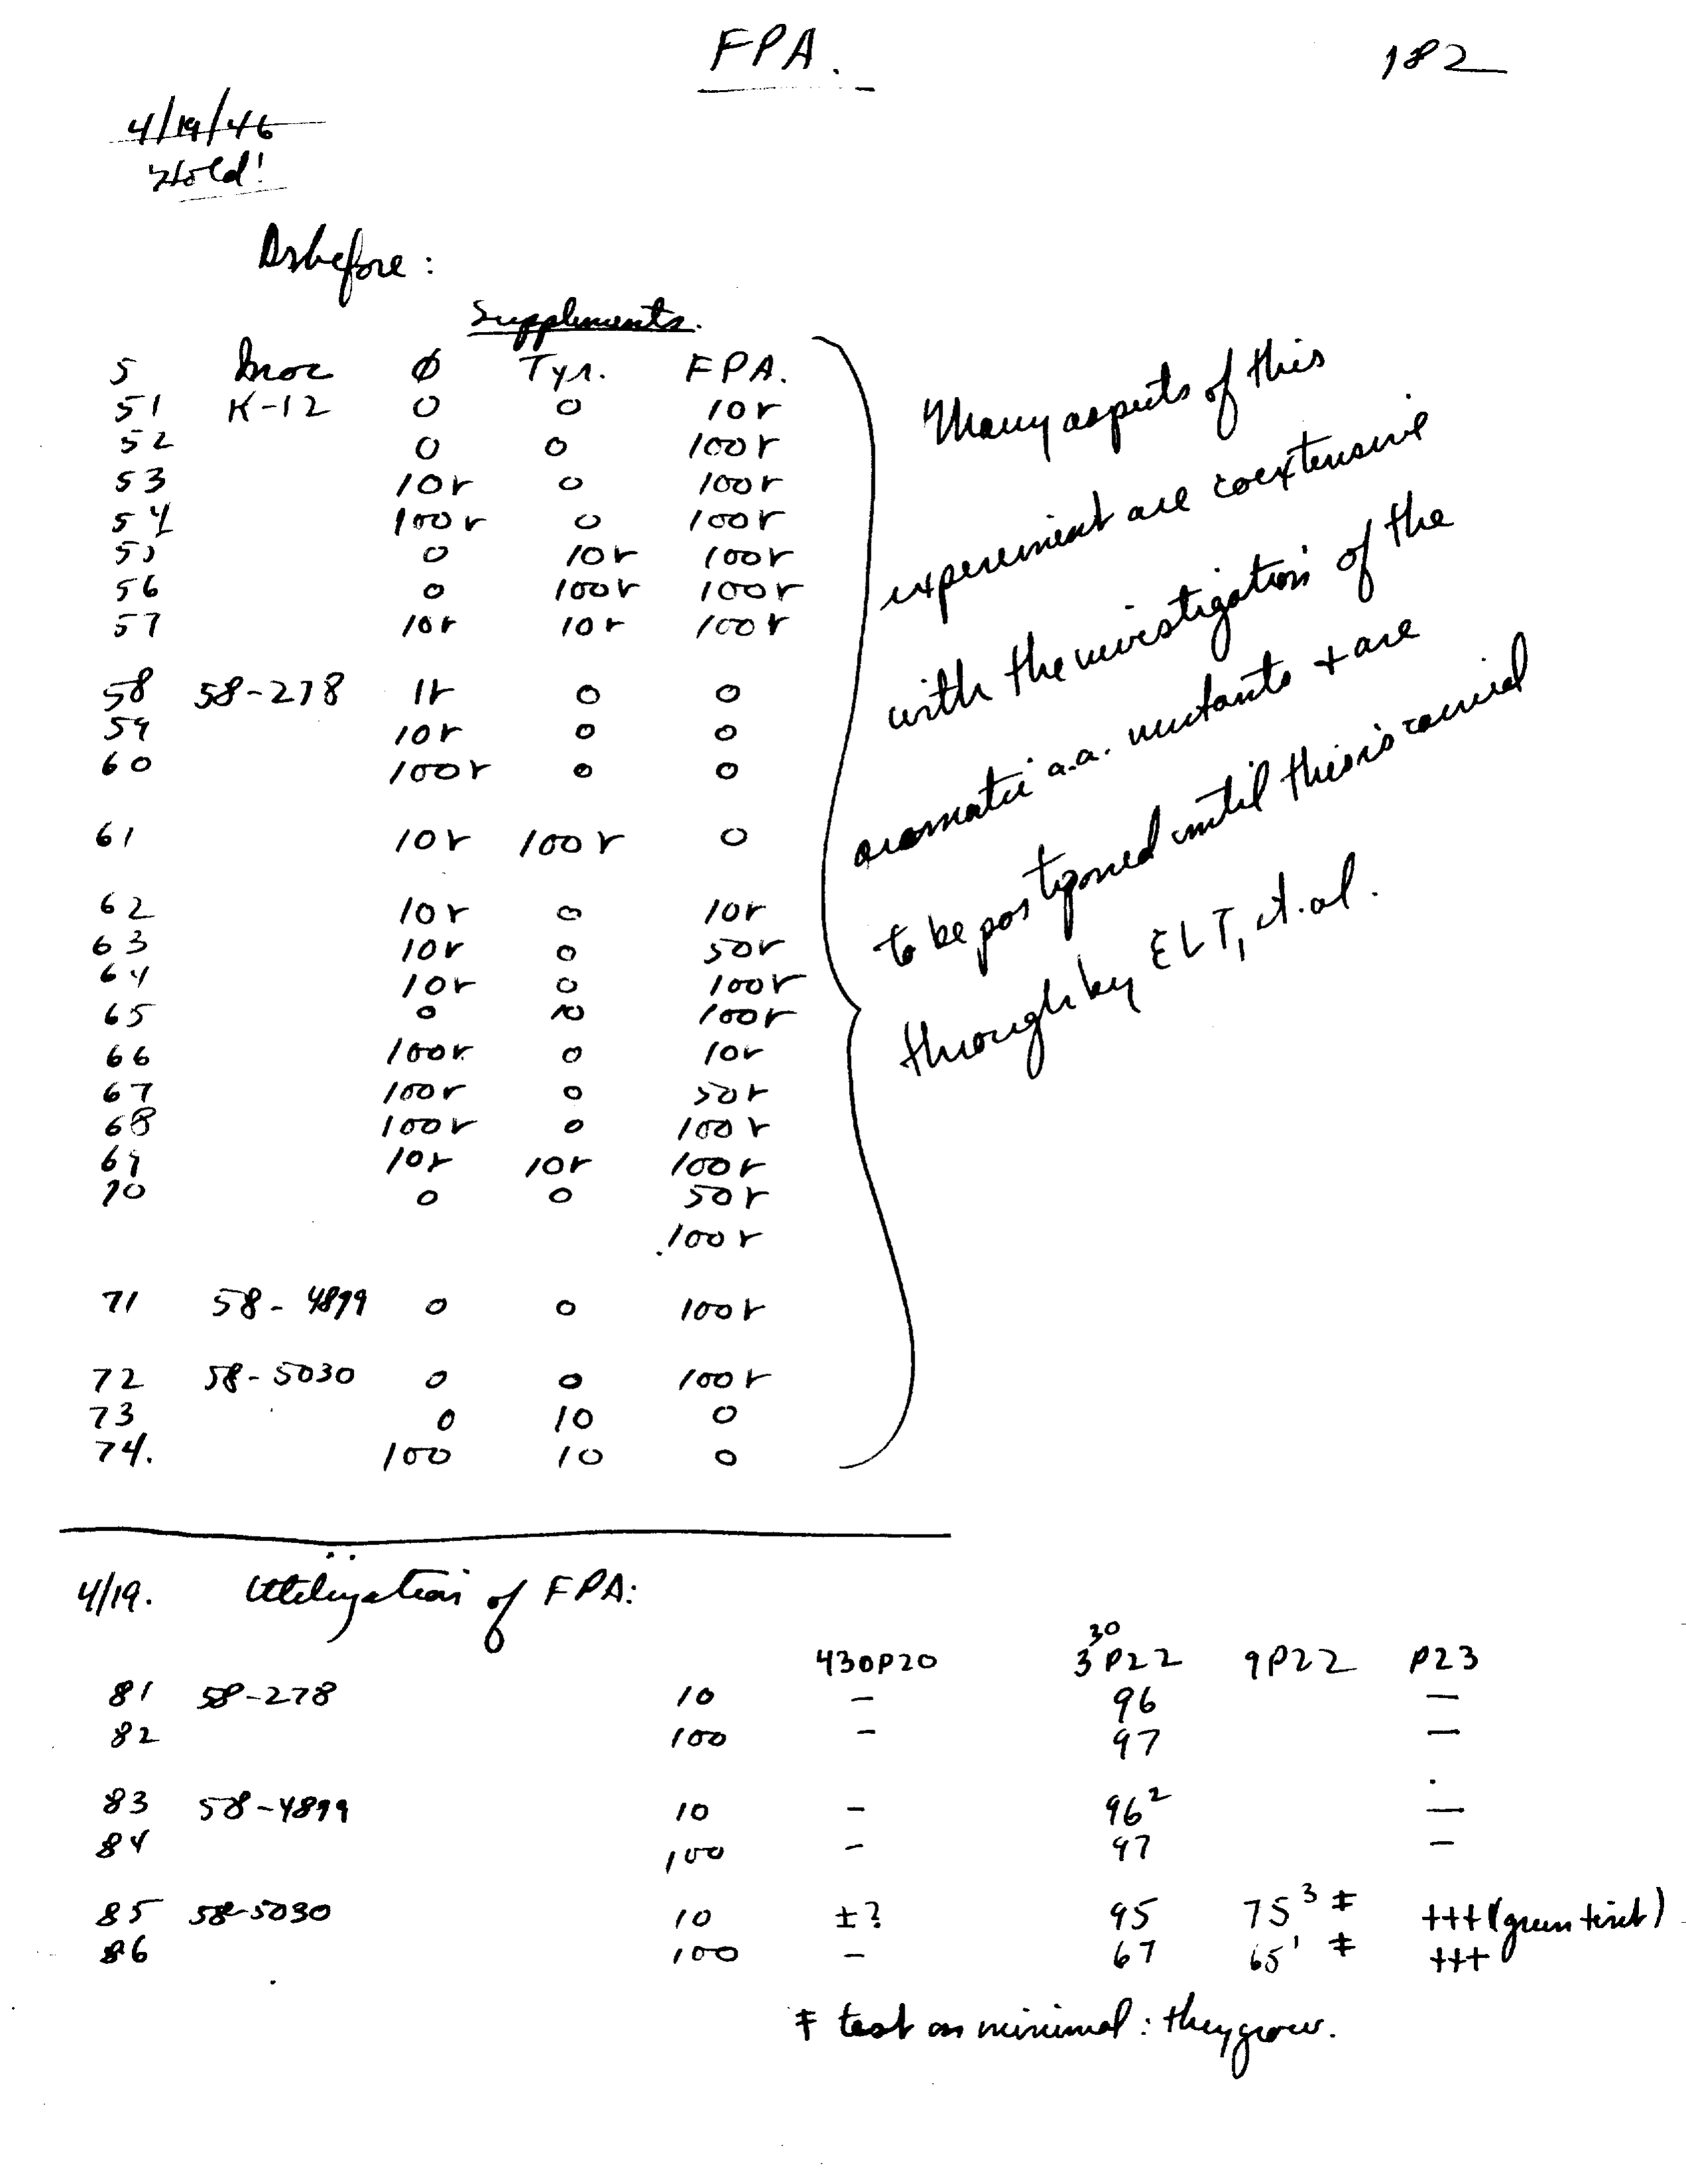 FPA.
182
4/19/46
Hold!
As before:
Supplements.
5 Inoc ∅ Tyr. FPA.
51 K-12 0 0 10r
52 0 0 100r
53 10r 0 100r
54 100r 0 100r
55 0 10r 100r
56 0 100r 100r
57 10r 10r 100r
58 58-278 1r 0 0
59 10r 0 0
60 100r 0 0
61 10r 100r 0
62 10r 0 10r
63 10r 0 50r
64 10r 0 100r
65 0 10 100r
66 100r 0 10r
67 100r 0 50r
68 100r 0 100r
69 10r 10r 100r
70 0 0 50r
100r
71 58-4899 0 0 100r
72 58-5030 0 0 100r
73 0 10 0
74. 100 10 0
Many aspects of this
experiment are coextensive
with the investigation of the
aromatic a.a. mutants + are
to be postponed until this is carried
through by ELT, et. al.
4/19. Utilization of FPA:
430P20 3 30 P22 9P22 P23
81 58-278 10 - 96 -
82 100 - 97 -
83 58-4899 10 - 96² -
84 100 - 97 -
85 58-5030 10 ±? 95 75³ ‡ +++ (green tint)
86 100 - 67 65¹ ‡ +++
‡ test on minimal: they grow.